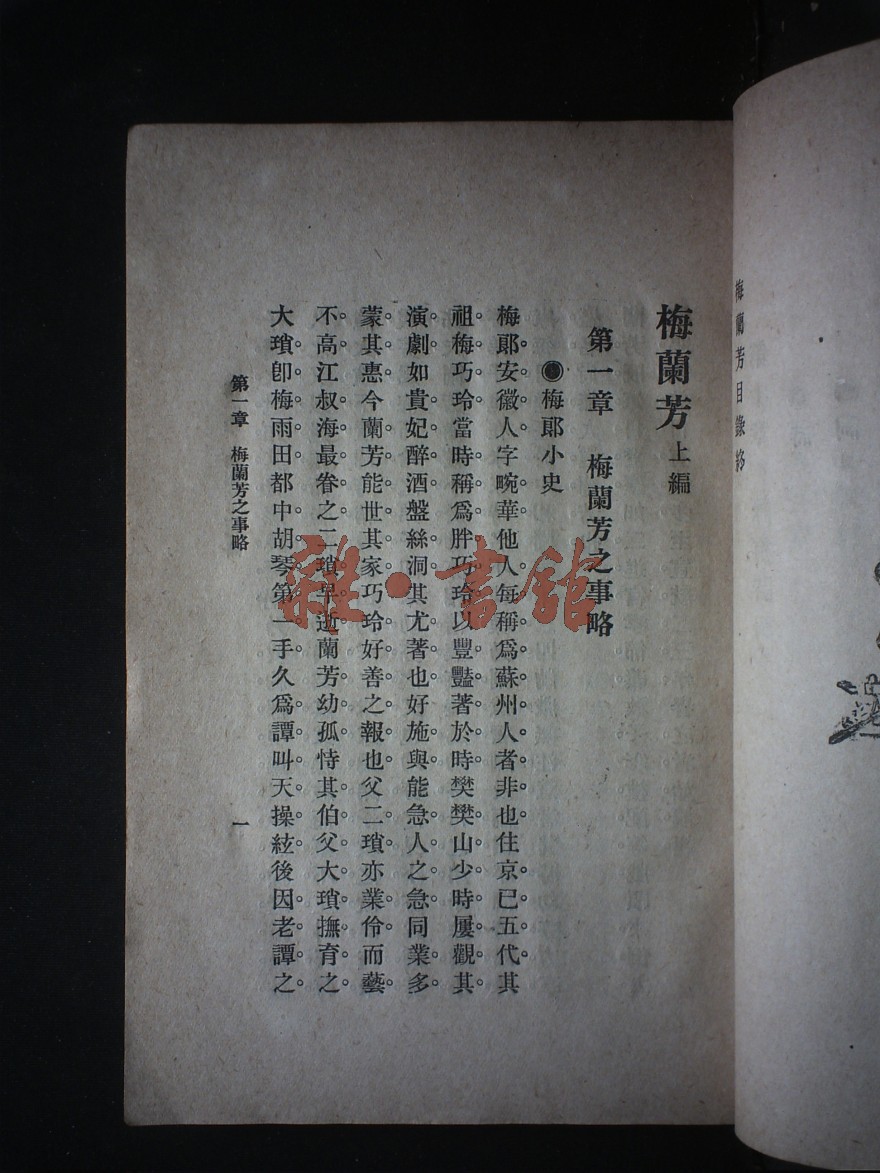 梅蘭芳目錄終
梅蘭芳 上編
第一章　梅蘭芳之事略
●梅郞小史
梅郞安徽人字畹華他人每稱爲蘇州人者非也住京已五代其
祖梅巧玲當時稱爲胖巧玲以豐豔著於時樊樊山少時屢觀其
演劇如貴妃醉酒盤絲洞其尤著也好施與能急人之急同業多
蒙其惠今蘭芳能世其家巧玲好善之報也父二瑣亦業伶而藝
不高江叔海最眷之二瑣早逝蘭芳幼孤恃其伯父大瑣撫育之
大瑣卽梅雨田都中胡琴第一手久爲譚叫天操絃後因老譚之
第一章　梅蘭芳之事略
一
雜·書館